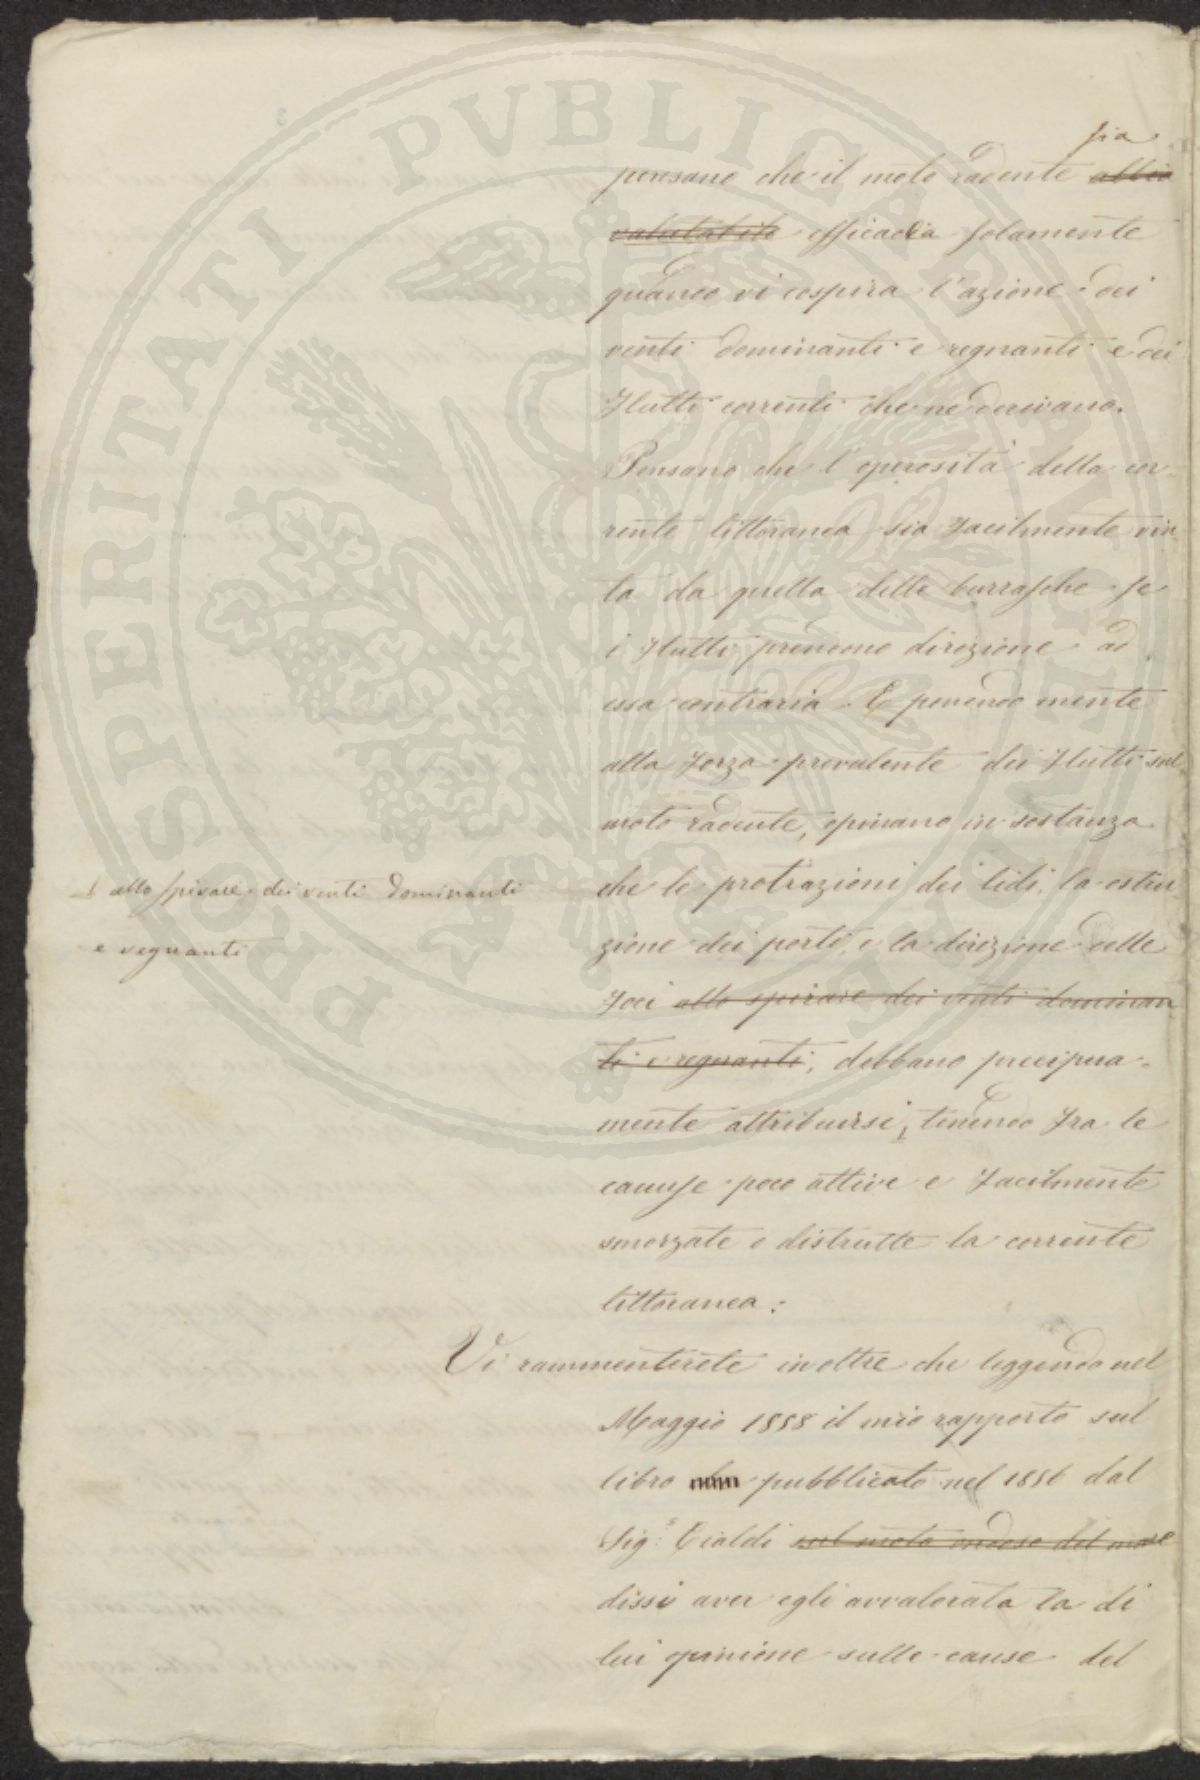 sia
pensano che il moto radente abbia
valutabile efficacia solamente
quando vi cospira l'azione dei
venti dominanti e regnanti e dei
flutti correnti che ne derivano.
Pensano che l'operosità della cor-
rente littoranea sia facilmente vin
ta da quella delle burrasche se
i flutti prendono direzione ad
essa contraria. E ponendo mente
alla forza prevalente dei flutti sul
moto radente, opinano in sostanza
che le protrazioni dei lidi, la ostru
zione dei porti, e la direzione delle
foci allo spirare dei venti dominan
ti e regnanti, debbano precipua-
mente attribuirsi, tenendo fra le
caause poco attive e facilmente
smorzate e distrutte la corrente
littoranea:
allo spirare dei venti dominanti
e regnanti
Vi rammenterete inoltre che leggendo nel
Maggio 1858 il mio rapporto sul
libro pubblicato nel 1856 dal
Sig.r Cialdi sul moto ondoso del mare
dissi aver egli avvalorata la di
lui opinione sulle cause del
PROSPERITATI PVBLICAE AVGENDAE